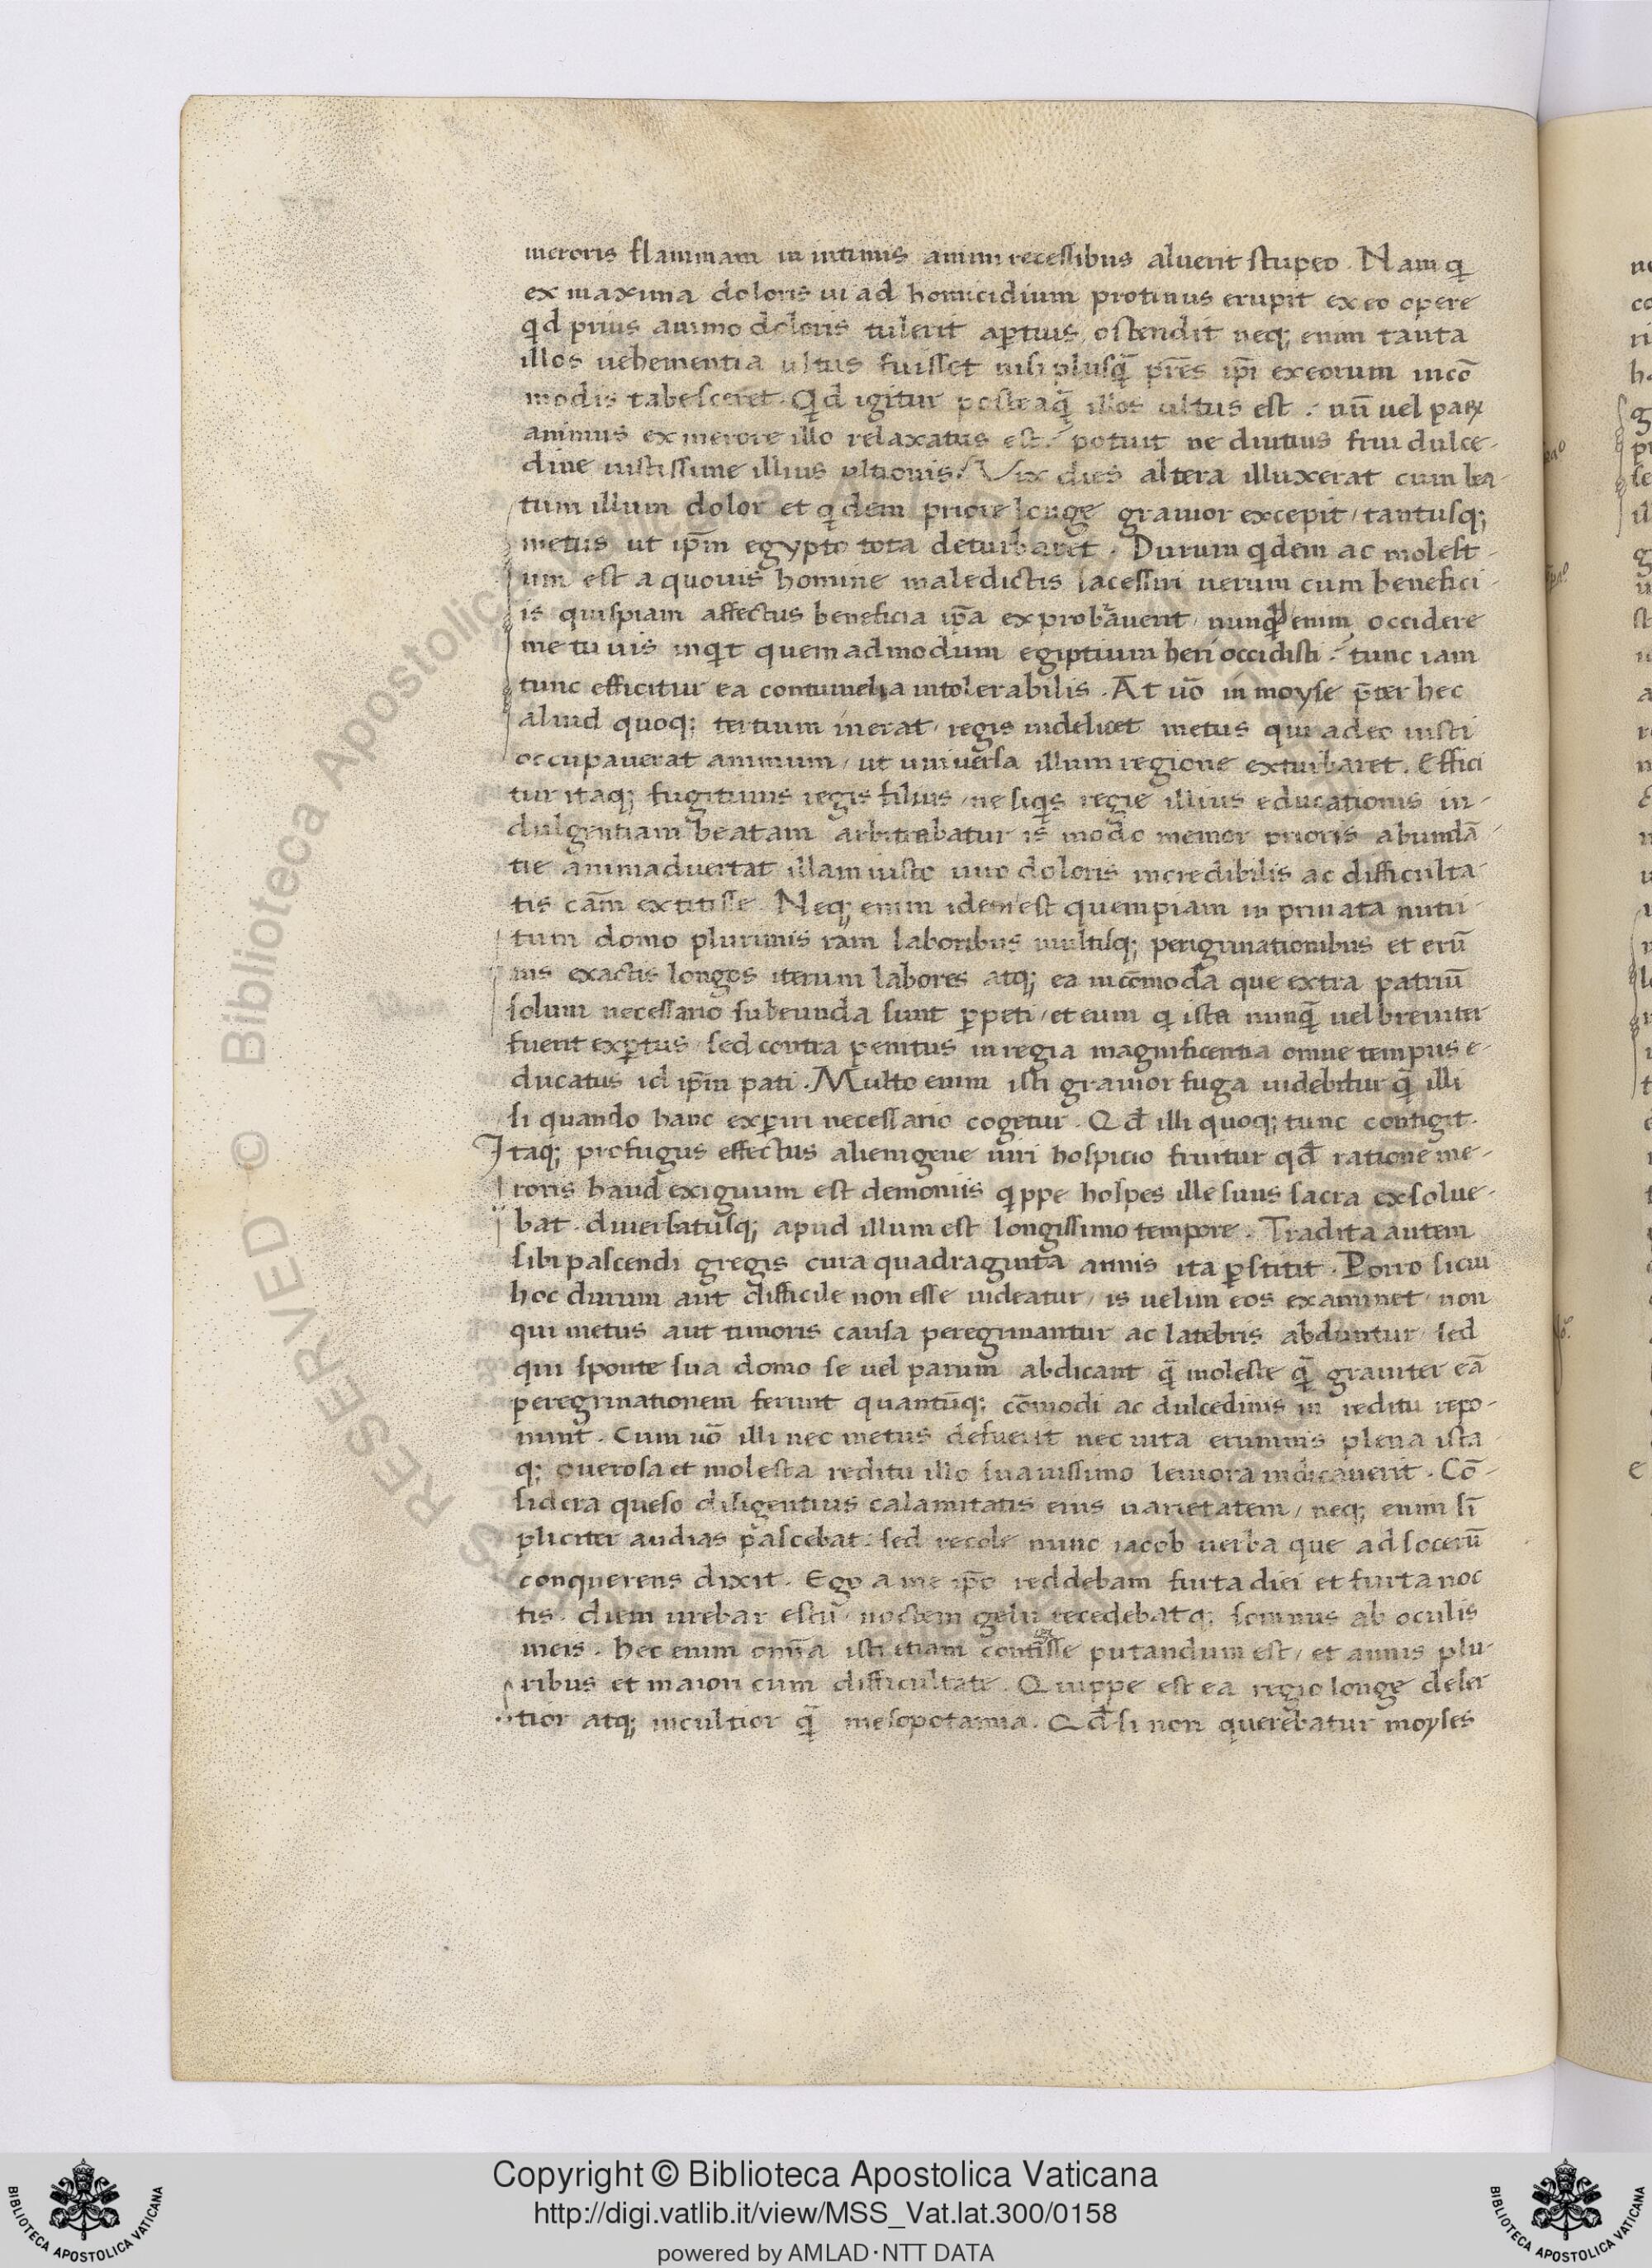 meroris flammam in intimis animi recessibus aluerit stupeo. Nam q̣
ex maxima doloris ui ad homicidium protinus erupit ex eo opere
qd prius animo doloris tulerit aptius ostendit neq; enim tanta
illos uehementia ultus fuisset nisi plusq̄ pr̄es ip̄i ex eorum incō
modis tabesceret. Qd igitur posteaq̄ illos ultus est. nū uel parū
animus ex merore illo relaxatus est. potuit ne diutius frui dulce-
dine iustissime illius ultionis. Vix dies altera illuxerat cum bea-
tum illum dolor et qdem priore longe grauior excepit / tantusq;
metus ut ip̄m egypto tota deturbaret. Durum qdem ac molest-
um est a quouis homine maledictis lacessiri uerum cum benefici-
is quispiam affectus beneficia ip̄a exprobrauerit / nunqd enim occidere
me tu uis inqit quemadmodum egiptium heri occidisti. tunc iam
tunc efficitur ea contumelia intolerabilis. At uō in moyse p̄ter hec
aliud quoq; tertium inerat / regis uidelicet metus qui adeo iusti
occupauerat animum / ut uniuersa illum regione exturbaret. Effici
tur itaq; fugitiuus regis filius / ne siqs regie illius educationis in-
dulgentiam beatam arbitrabatur is modo memor prioris abundā-
tie animaduertat illam iusto uiro doloris incredibilis ac difficulta-
tis cām extitisse. Neq; enim idem est quempiam in priuata nutri-
tum domo plurimis iam laboribus multisq; peregrinationibus et erū
nis exactis longos iterum labores atq; ea incōmoda que extra patriū
solum necessario subeunda sunt ꝑpeti / et eum q ista nunq̄ uel breuiter
fuerit exꝑtus / sed contra penitus in regia magnificentia omne tempus e-
ducatus id ip̄m pati. Multo enim isti grauior fuga uidebitur q̄ illi
si quando hanc exꝑiri necessario cogetur. Qd illi quoq; tunc contigit.
Itaq; profugus effectus alienigene uiri hospicio fruitur qd ratione me-
roris haud exiguum est demoniis qppe hospes ille suus sacra exsolue-
bat. diuersatusq; apud illum est longissimo tempore. Tradita autem
sibi pascendi gregis cura quadraginta annis ita ꝑstitit. Porro sicui
hoc durum aut difficile non esse uideatur / is uelim eos examinet / non
qui metus aut timoris causa peregrinantur ac latebris abduntur / sed
qui sponte sua domo se uel parum abdicant q̄ moleste q̄ grauiter eā
peregrinationem ferunt quantūq; cōmodi ac dulcedinis in reditu repo-
nunt. Cum uō illi nec metus defuerit nec uita erumnis plena ista-
q; onerosa et molesta reditu illo suauissimo leuiora indicauerit. Cō-
sidera queso diligentius calamitatis eius uarietatem / neq; enim sī
pliciter audias pascebat. sed recole nunc iacob uerba que ad socerū
conquerens dixit. Ego a me ip̄o reddebam furta diei et furta noc
tis. diem urebar estu / noctem gelu recedebatq; somnus ab oculis
meis. hec enim omīa isti etiam contigisse putandum est / et annis plu-
ribus et maiori cum difficultate. Quippe est ea regio longe deser
tior atq; incultior q̄ mesopotamia. Qd si non querebatur moyses
Copyright © Biblioteca Apostolica Vaticana
http://digi.vatlib.it/view/MSS_Vat.lat.300/0158
powered by AMLAD·NTT DATA